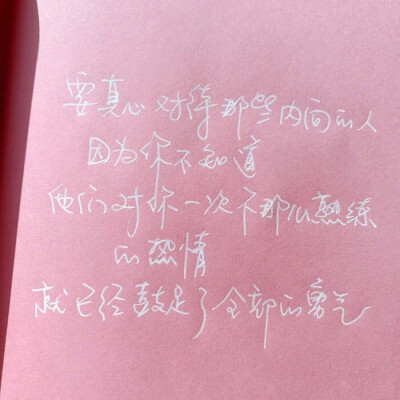 要真心对待那些内向的人
因为你不知道
他们对你一次不那么熟练
的热情
就已经鼓足了全部的勇气